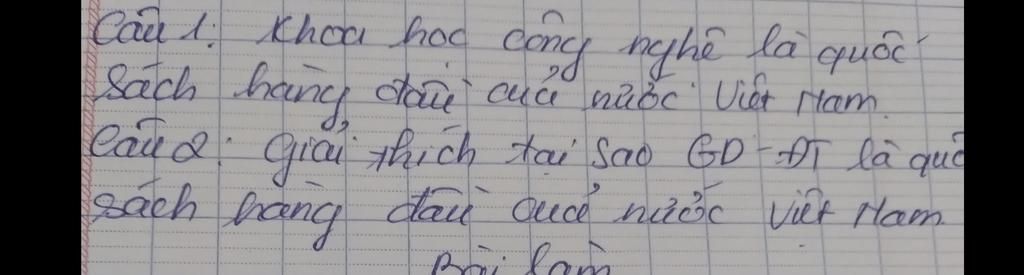 Câu 1: Khoa học công nghệ là quốc
sách hàng đầu của nước Việt Nam.
Câu 2: Giải thích tại sao GD-ĐT là quố
sách hàng đầu của nước Việt Nam
Bài làm